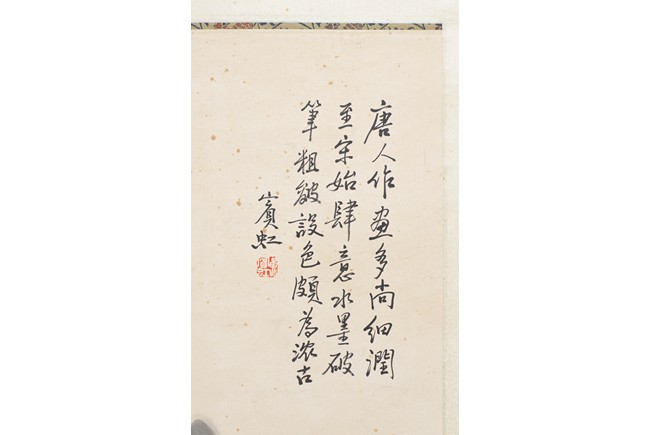 唐人作畫多尚細潤
至宋始肆意水墨破
筆粗皴設色頗為濃古
賓虹